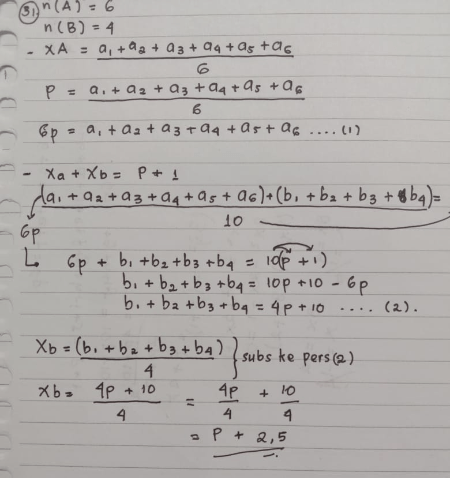 31) n(A) = 6
n(B) = 4
- xA = a₁ + a₂ + a₃ + a₄ + a₅ + a₆
6
P = a₁ + a₂ + a₃ + a₄ + a₅ + a₆
6
6p = a₁ + a₂ + a₃ + a₄ + a₅ + a₆ ....(1)
- Xa + Xb = P + 1
(a₁ + a₂ + a₃ + a₄ + a₅ + a₆) + (b₁ + b₂ + b₃ + b₄) =
10
6p
6p + b₁ + b₂ + b₃ + b₄ = 10(p + 1)
b₁ + b₂ + b₃ + b₄ = 10p + 10 - 6p
b₁ + b₂ + b₃ + b₄ = 4p + 10 .... (2).
Xb = (b₁ + b₂ + b₃ + b₄) } subs ke pers(2)
4
Xb = 4p + 10 = 4p + 10
4 4 4
= P + 2,5